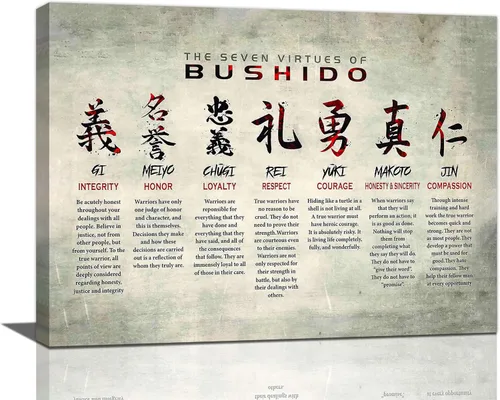 THE SEVEN VIRTUES OF
BUSHIDO
義
GI
INTEGRITY
Be acutely honest
throughout your
dealings with all
people. Believe in
justice, not from
other people, but
from yourself. To the
true warrior, all
points of view are
deeply considered
regarding honesty,
justice and integrity
名
誉
MEIYO
HONOR
Warriors have only
one judge of honor
and character, and
this is themselves.
Decisions they make
and how these
decisions are carried
out is a reflection of
whom they truly are.
忠
義
CHŪGI
LOYALTY
Warriors are
responsible for
everything that they
have done and
everything that they
have said, and all of
the consequences
that follow. They are
immensely loyal to all
of those in their care.
礼
REI
RESPECT
True warriors have
no reason to be
cruel. They do not
need to prove their
strength. Warriors
are courteous even to
their enemies.
Warriors are not
only respected for
their strength in
battle, but also by
their dealings with
others.
勇
YŪKI
COURAGE
Hiding like a turtle in a
shell is not living at all.
A true warrior must
have heroic courage.
It is absolutely risky. It
is living life completely,
fully, and wonderfully.
真
MAKOTO
HONESTY & SINCERITY
When warriors say
that they will
perform an action, it
is as good as done.
Nothing will stop
them from
completing what
they say they will do.
They do not have to
"give their word".
They do not have to
"promise".
仁
JIN
COMPASSION
Through intense
training and hard
work the true warrior
becomes quick and
strong. They are not
as most people. They
develop a power that
must be used for
good. They have
compassion. They
help their fellow man
at every opportunity